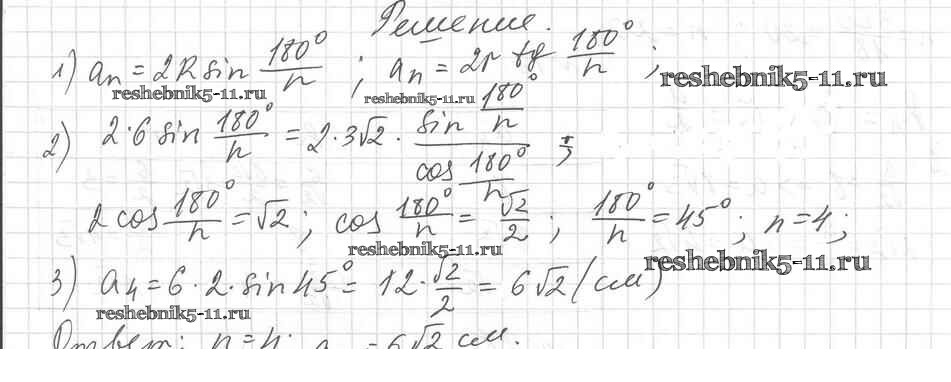 Решение.
1) aₙ = 2R sin 180°/n ; aₙ = 2r tg 180°/n ;
reshebnik5-11.ru reshebnik5-11.ru reshebnik5-11.ru
2) 2·6 sin 180°/n = 2·3√2 · (sin 180°/n)/(cos 180°/n) ;
2cos 180°/n = √2 ; cos 180°/n = √2/2 ; 180°/n = 45° ; n = 4 ;
reshebnik5-11.ru reshebnik5-11.ru
3) a₄ = 6·2·sin 45° = 12·√2/2 = 6√2 (см)
reshebnik5-11.ru
Ответ: n = 4. = 6√2 см.